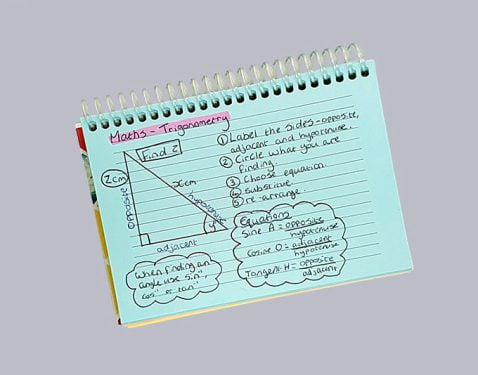 Maths - Trigonometry
Find z
zcm
opposite
xcm
hypotenuse
y
adjacent
① Label the sides - opposite,
adjacent and hypotenuse.
② Circle what you are
finding.
③ Choose equation.
④ Substitute.
⑤ re-arrange.
Equations
Sine A = opposite
hypotenuse
Cosine O = adjacent
hypotenuse
Tangent H = opposite
adjacent
When finding an
angle use sin⁻¹,
cos⁻¹ or tan⁻¹